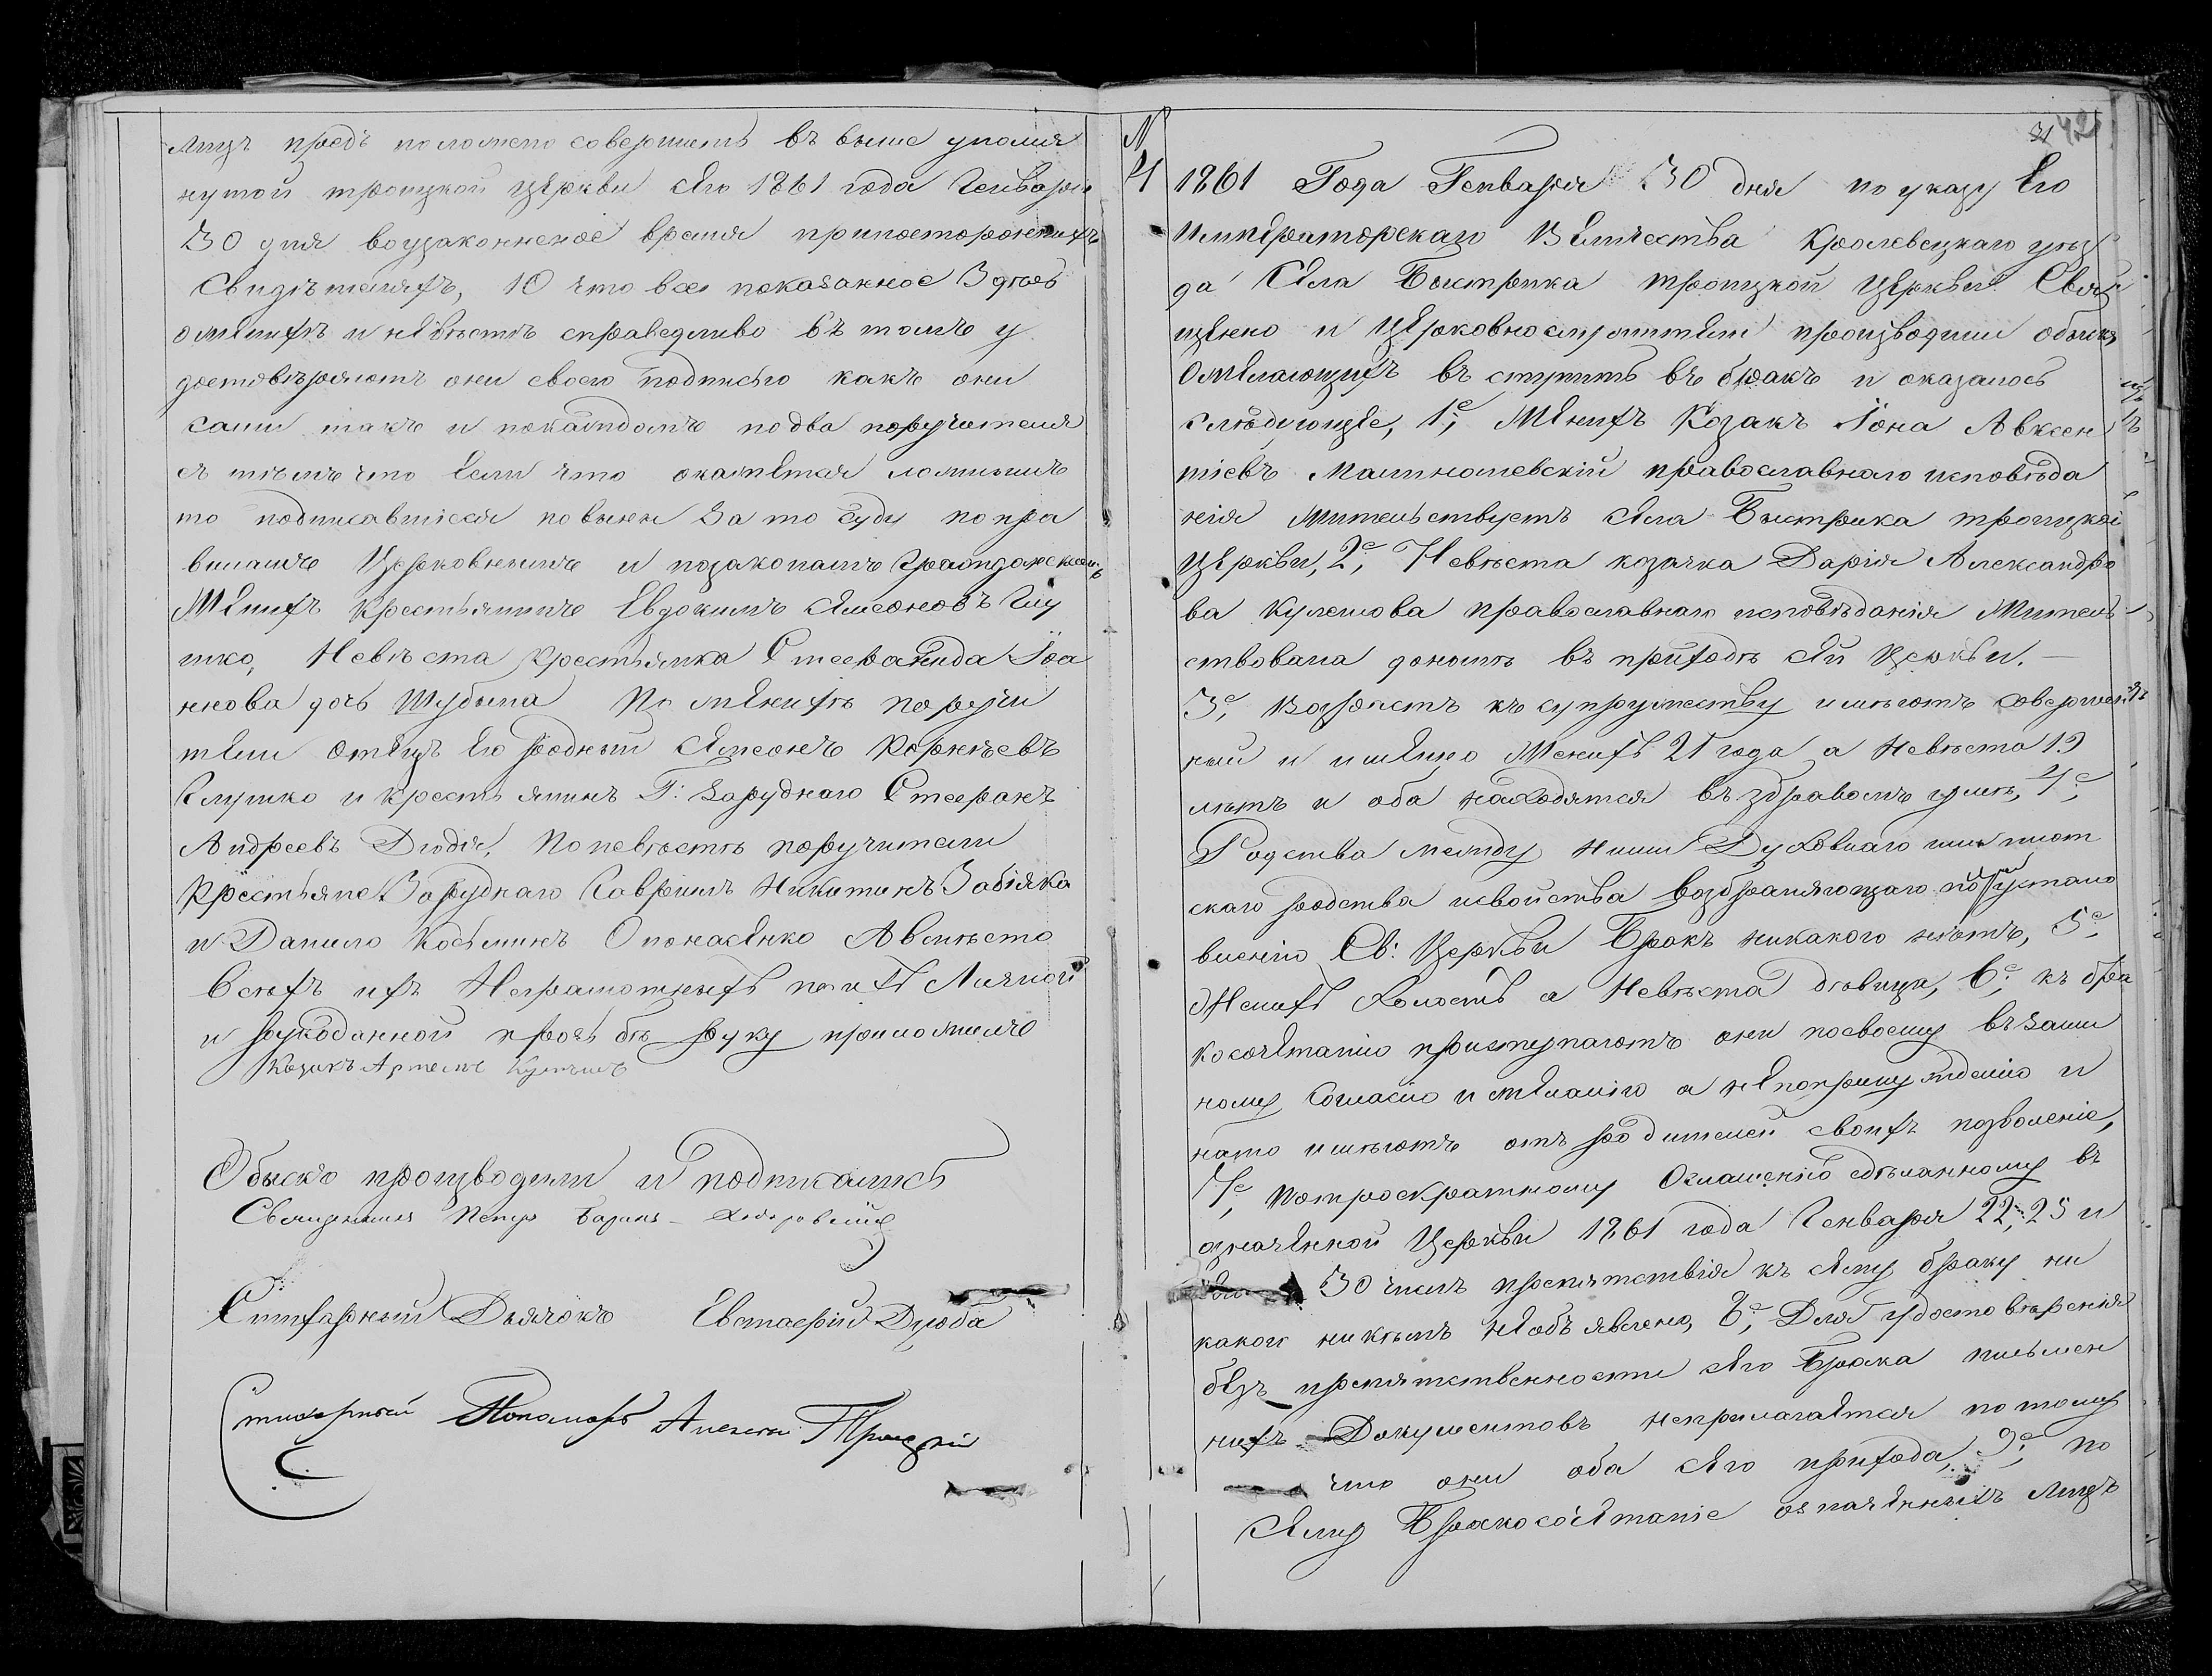 лицъ предъ положено совершить въ выше упомя
нутой троицкой церкви сего 1861 года Генваря
30 дня воузаконненое время припостороннихъ
Свидѣтеляхъ, 10 что все показанное Здѣсь
ожениxѣ и невѣстѣ справедливо въ томъ у
достовѣряютъ они своею подписью какъ они
сами такъ и покаждомъ подва поручителя
съ тѣмъ что если что окажется ложнымъ
то подписавшіеся повинн за то суду попра
виламъ Церковнымъ и позаконамъ Гражданскимъ
Женихъ крестьянинъ Евдокимъ Симеоновъ
Невѣста крестьянка Стефанида Іоа
ннова дочь Шубына По женихѣ поручи
тели отецъ его родный Симеонъ Корнѣевъ
и крестьянинъ Г: Заруднаго Стефанъ
Андреевъ Дюдя, Поневѣстѣ поручители
крестьяне Заруднаго Гавріилъ Никитинъ Забіяка
и Данило Косьминъ Опонасенко Авмѣсто
всѣхъ ихъ Неграмотныхъ поихъ Личной
и рукоданной прозьбѣ руку приложилъ
Козакъ Артемъ

Обыскъ производили и подписались
Священникъ Петръ
Стихарный Дьячокъ Евстафій Дзюба
Стихарный Пономарь Алексѣй Троицкій

31 42
N
4 1861 Года Генваря 30 дня по указу Его
Императорскаго Величества Кролевецкаго уѣз
да Села Быстрика троицкой Церкви Свящ
щенно и Церковнослужители производили обыскъ
Ожелающихъ въ ступить въ бракъ и оказалось
слѣдующее, 1е, Женихъ Козакъ Іона Авксен
тіевъ православнаго исповѣда
нія Жительствуетъ села Быстрика троицкой
Церкви, 2е, Невѣста козачка Дарія Александро
ва Кулешова православнаго исповѣданія Житель
ствовала донынѣ въ приходѣ сей Церкви. —
3е, Возрастъ къ супружеству имѣютъ совершен
ный и именно Женихъ 21 года а Невѣста 19
лѣтъ и оба находятся въ здравомъ умѣ, 4е,
Родства между ними Духовнаго или плот
скаго родства исвойства возбраняющаго по устано
вленію Св: Церкви Бракъ никакого нѣтъ, 5е,
Женихъ Холостъ а Невѣста дѣвица, 6е, къ бра
косочетанію приступаютъ они посвоему взаим
ному Согласію и желанію а непопринужденію и
нато имѣютъ отъ родителей своихъ позволеніе,
7е, Потроекратному Оглашенію сдѣланному въ
означенной Церкви 1861 года Генваря 22, 25 и
30 числъ препятствія къ сему браку ни
какого никѣмъ необъявлено, 8е, Для удостовѣренія
безъ препятственности сего Брака письмен
ныхъ Документовъ неприлагается потому
что они оба сего прихода, 9е, по
Сему Бракосочетаніе означенныхъ лицъ